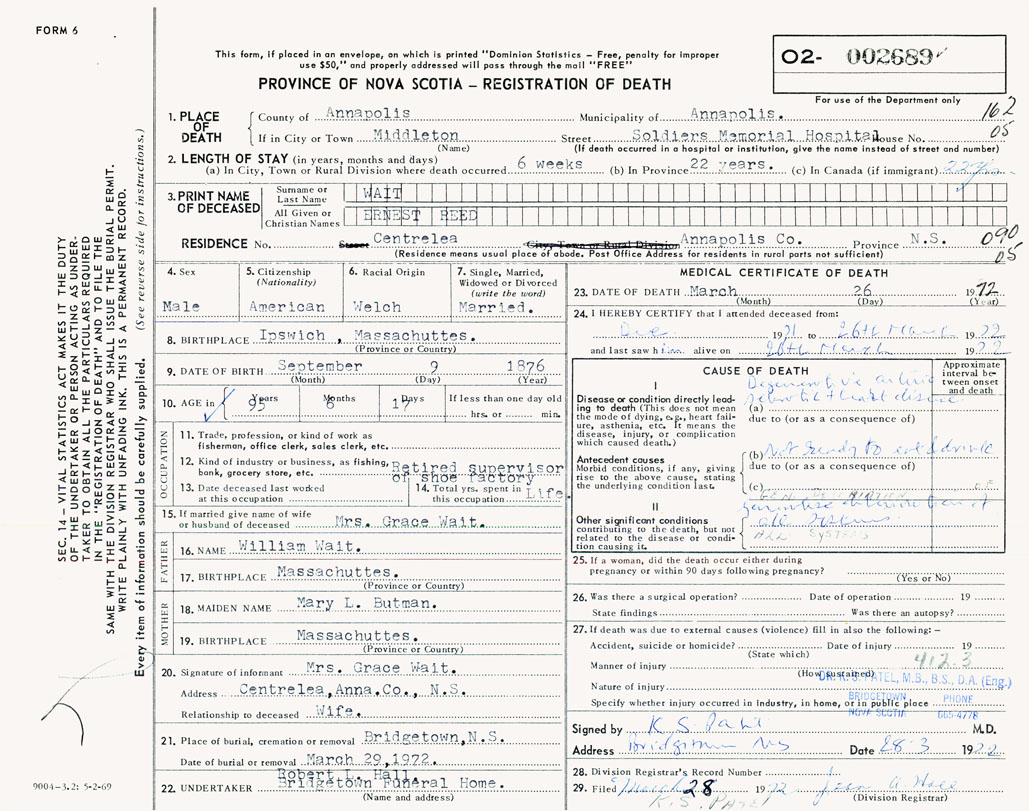 FORM 6
This form, if placed in an envelope, on which is printed "Dominion Statistics – Free, penalty for improper
use $50," and properly addressed will pass through the mail "FREE"
PROVINCE OF NOVA SCOTIA – REGISTRATION OF DEATH
02- 002689
For use of the Department only
162
05
1. PLACE OF DEATH
County of Annapolis Municipality of Annapolis.
If in City or Town Middleton Street Soldiers Memorial Hospital House No.
(Name) (If death occurred in a hospital or institution, give the name instead of street and number)
2. LENGTH OF STAY (in years, months and days)
(a) In City, Town or Rural Division where death occurred 6 weeks (b) In Province 22 years. (c) In Canada (if immigrant)
3. PRINT NAME OF DECEASED
Surname or Last Name WAIT
All Given or Christian Names ERNEST REED
RESIDENCE No. Street Centrelea City, Town or Rural Division Annapolis Co. Province N.S.
(Residence means usual place of abode. Post Office Address for residents in rural parts not sufficient)
090
05
4. Sex
Male
5. Citizenship
(Nationality)
American
6. Racial Origin
Welch
7. Single, Married,
Widowed or Divorced
(write the word)
Married.
8. BIRTHPLACE Ipswich, Massachuttes.
(Province or Country)
9. DATE OF BIRTH September 9 1876
(Month) (Day) (Year)
10. AGE in 95 Years 6 Months 17 Days If less than one day old
hrs. or min.
OCCUPATION
11. Trade, profession, or kind of work as
fisherman, office clerk, sales clerk, etc.
12. Kind of industry or business, as fishing,
bank, grocery store, etc. Retired supervisor
of shoe factory
13. Date deceased last worked
at this occupation
14. Total yrs. spent in
this occupation Life.
15. If married give name of wife
or husband of deceased Mrs. Grace Wait.
FATHER
16. NAME William Wait.
17. BIRTHPLACE Massachuttes.
(Province or Country)
MOTHER
18. MAIDEN NAME Mary L. Butman.
19. BIRTHPLACE Massachuttes.
(Province or Country)
20. Signature of informant Mrs. Grace Wait.
Address Centrelea, Anna.Co., N.S.
Relationship to deceased Wife.
21. Place of burial, cremation or removal Bridgetown, N.S.
Date of burial or removal March 29, 1972.
Robert L. Hall.
22. UNDERTAKER Bridgetown Funeral Home.
(Name and address)
MEDICAL CERTIFICATE OF DEATH
23. DATE OF DEATH March 26 1972
(Month) (Day) (Year)
24. I HEREBY CERTIFY that I attended deceased from:
19 to 26th March 19
and last saw him alive on 26th March 19
CAUSE OF DEATH
Approximate
interval be-
tween onset
and death
I
Disease or condition directly lead-
ing to death (This does not mean
the mode of dying, e.g., heart fail-
ure, asthenia, etc. It means the
disease, injury, or complication
which caused death.)
(a)
due to (or as a consequence of)
Antecedent causes
Morbid conditions, if any, giving
rise to the above cause, stating
the underlying condition last.
(b)
due to (or as a consequence of)
(c)
II
Other significant conditions
contributing to the death, but not
related to the disease or condi-
tion causing it.
ALL SYSTEMS
25. If a woman, did the death occur either during
pregnancy or within 90 days following pregnancy?
(Yes or No)
26. Was there a surgical operation? Date of operation 19
State findings Was there an autopsy?
27. If death was due to external causes (violence) fill in also the following: –
Accident, suicide or homicide? Date of injury 19
(State which)
412.3
Manner of injury
(How sustained)
Nature of injury
DR. K. S. PATEL, M.B., B.S., D.A. (Eng.)
Specify whether injury occurred in industry, in home, or in public place
BRIDGETOWN, PHONE
NOVA SCOTIA 665-4778
Signed by K. S. Patel M.D.
Address Bridgetown NS Date 28-3 19
28. Division Registrar's Record Number
29. Filed March 28 1972
(Division Registrar)
K. S. PATEL
SEC. 14 – VITAL STATISTICS ACT MAKES IT THE DUTY
OF THE UNDERTAKER OR PERSON ACTING AS UNDER-
TAKER TO OBTAIN ALL THE PARTICULARS REQUIRED
IN THE "REGISTRATION OF DEATH" AND TO FILE THE
SAME WITH THE DIVISION REGISTRAR WHO SHALL ISSUE THE BURIAL PERMIT.
WRITE PLAINLY WITH UNFADING INK. THIS IS A PERMANENT RECORD.
Every item of information should be carefully supplied. (See reverse side for instructions.)
9004-3.2: 5-2-69